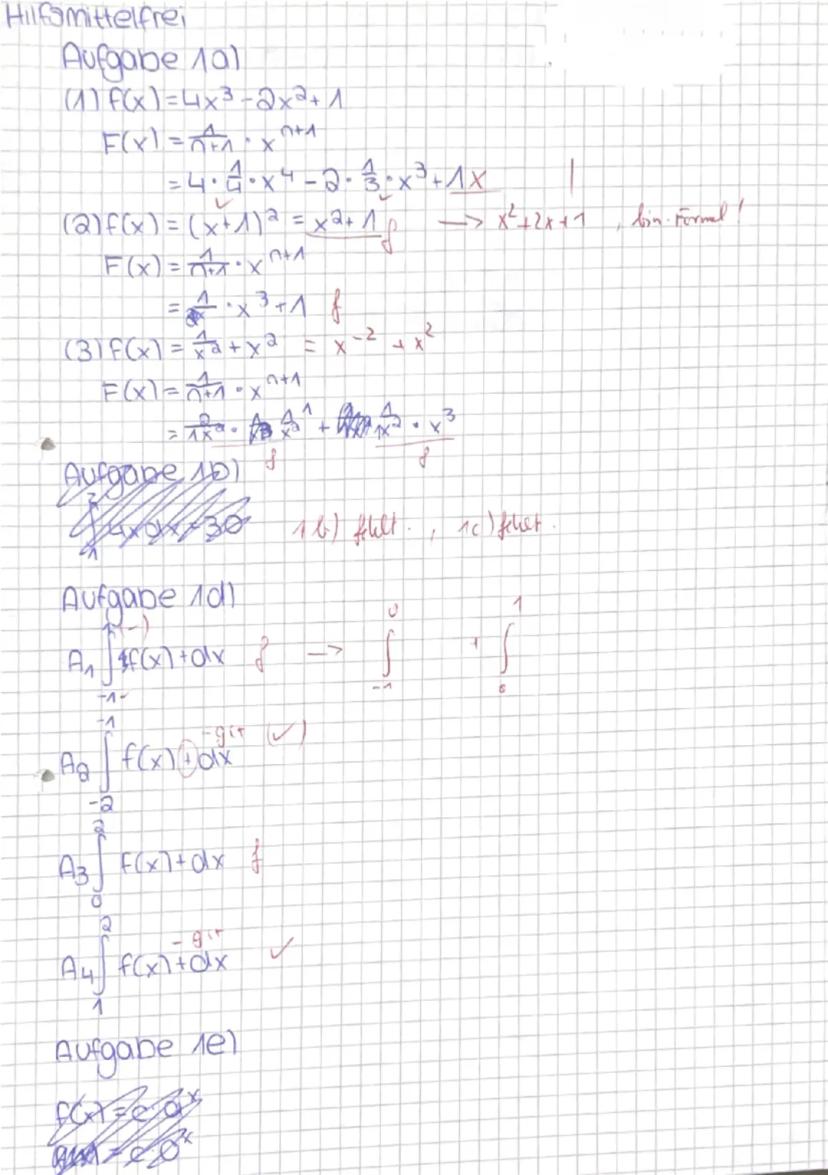 Hilfsmittelfrei
Aufgabe 1a)
(1) f(x) = 4x³ - 2x² + 1
F(x) = 1/(n+1) · x^(n+1)
= 4 · 1/4 · x⁴ - 2 · 1/3 · x³ + 1x |
✓ ✓
(2) f(x) = (x+1)² = x² + 1 f → x² + 2x + 1 , bin. Formel!
F(x) = 1/(n+1) · x^(n+1)
= · x³ + 1 f
(3) f(x) = 1/x² + x² = x⁻² + x²
F(x) = 1/(n+1) · x^(n+1)
· x³
f f
Aufgabe 1b)
4x dx = 30 1b) fehlt. , 1c) fehlt.
Aufgabe 1d)
(-)
A₁ ∫ f(x) + dx f → ∫₋₁⁰ + ∫₀¹
A₂ ∫₋₂⁻¹ f(x) + dx (✓)
A₃ ∫₀² f(x) + dx f
A₄ ∫₁² f(x) + dx ✓
Aufgabe 1e)
f(x) = e·a^x